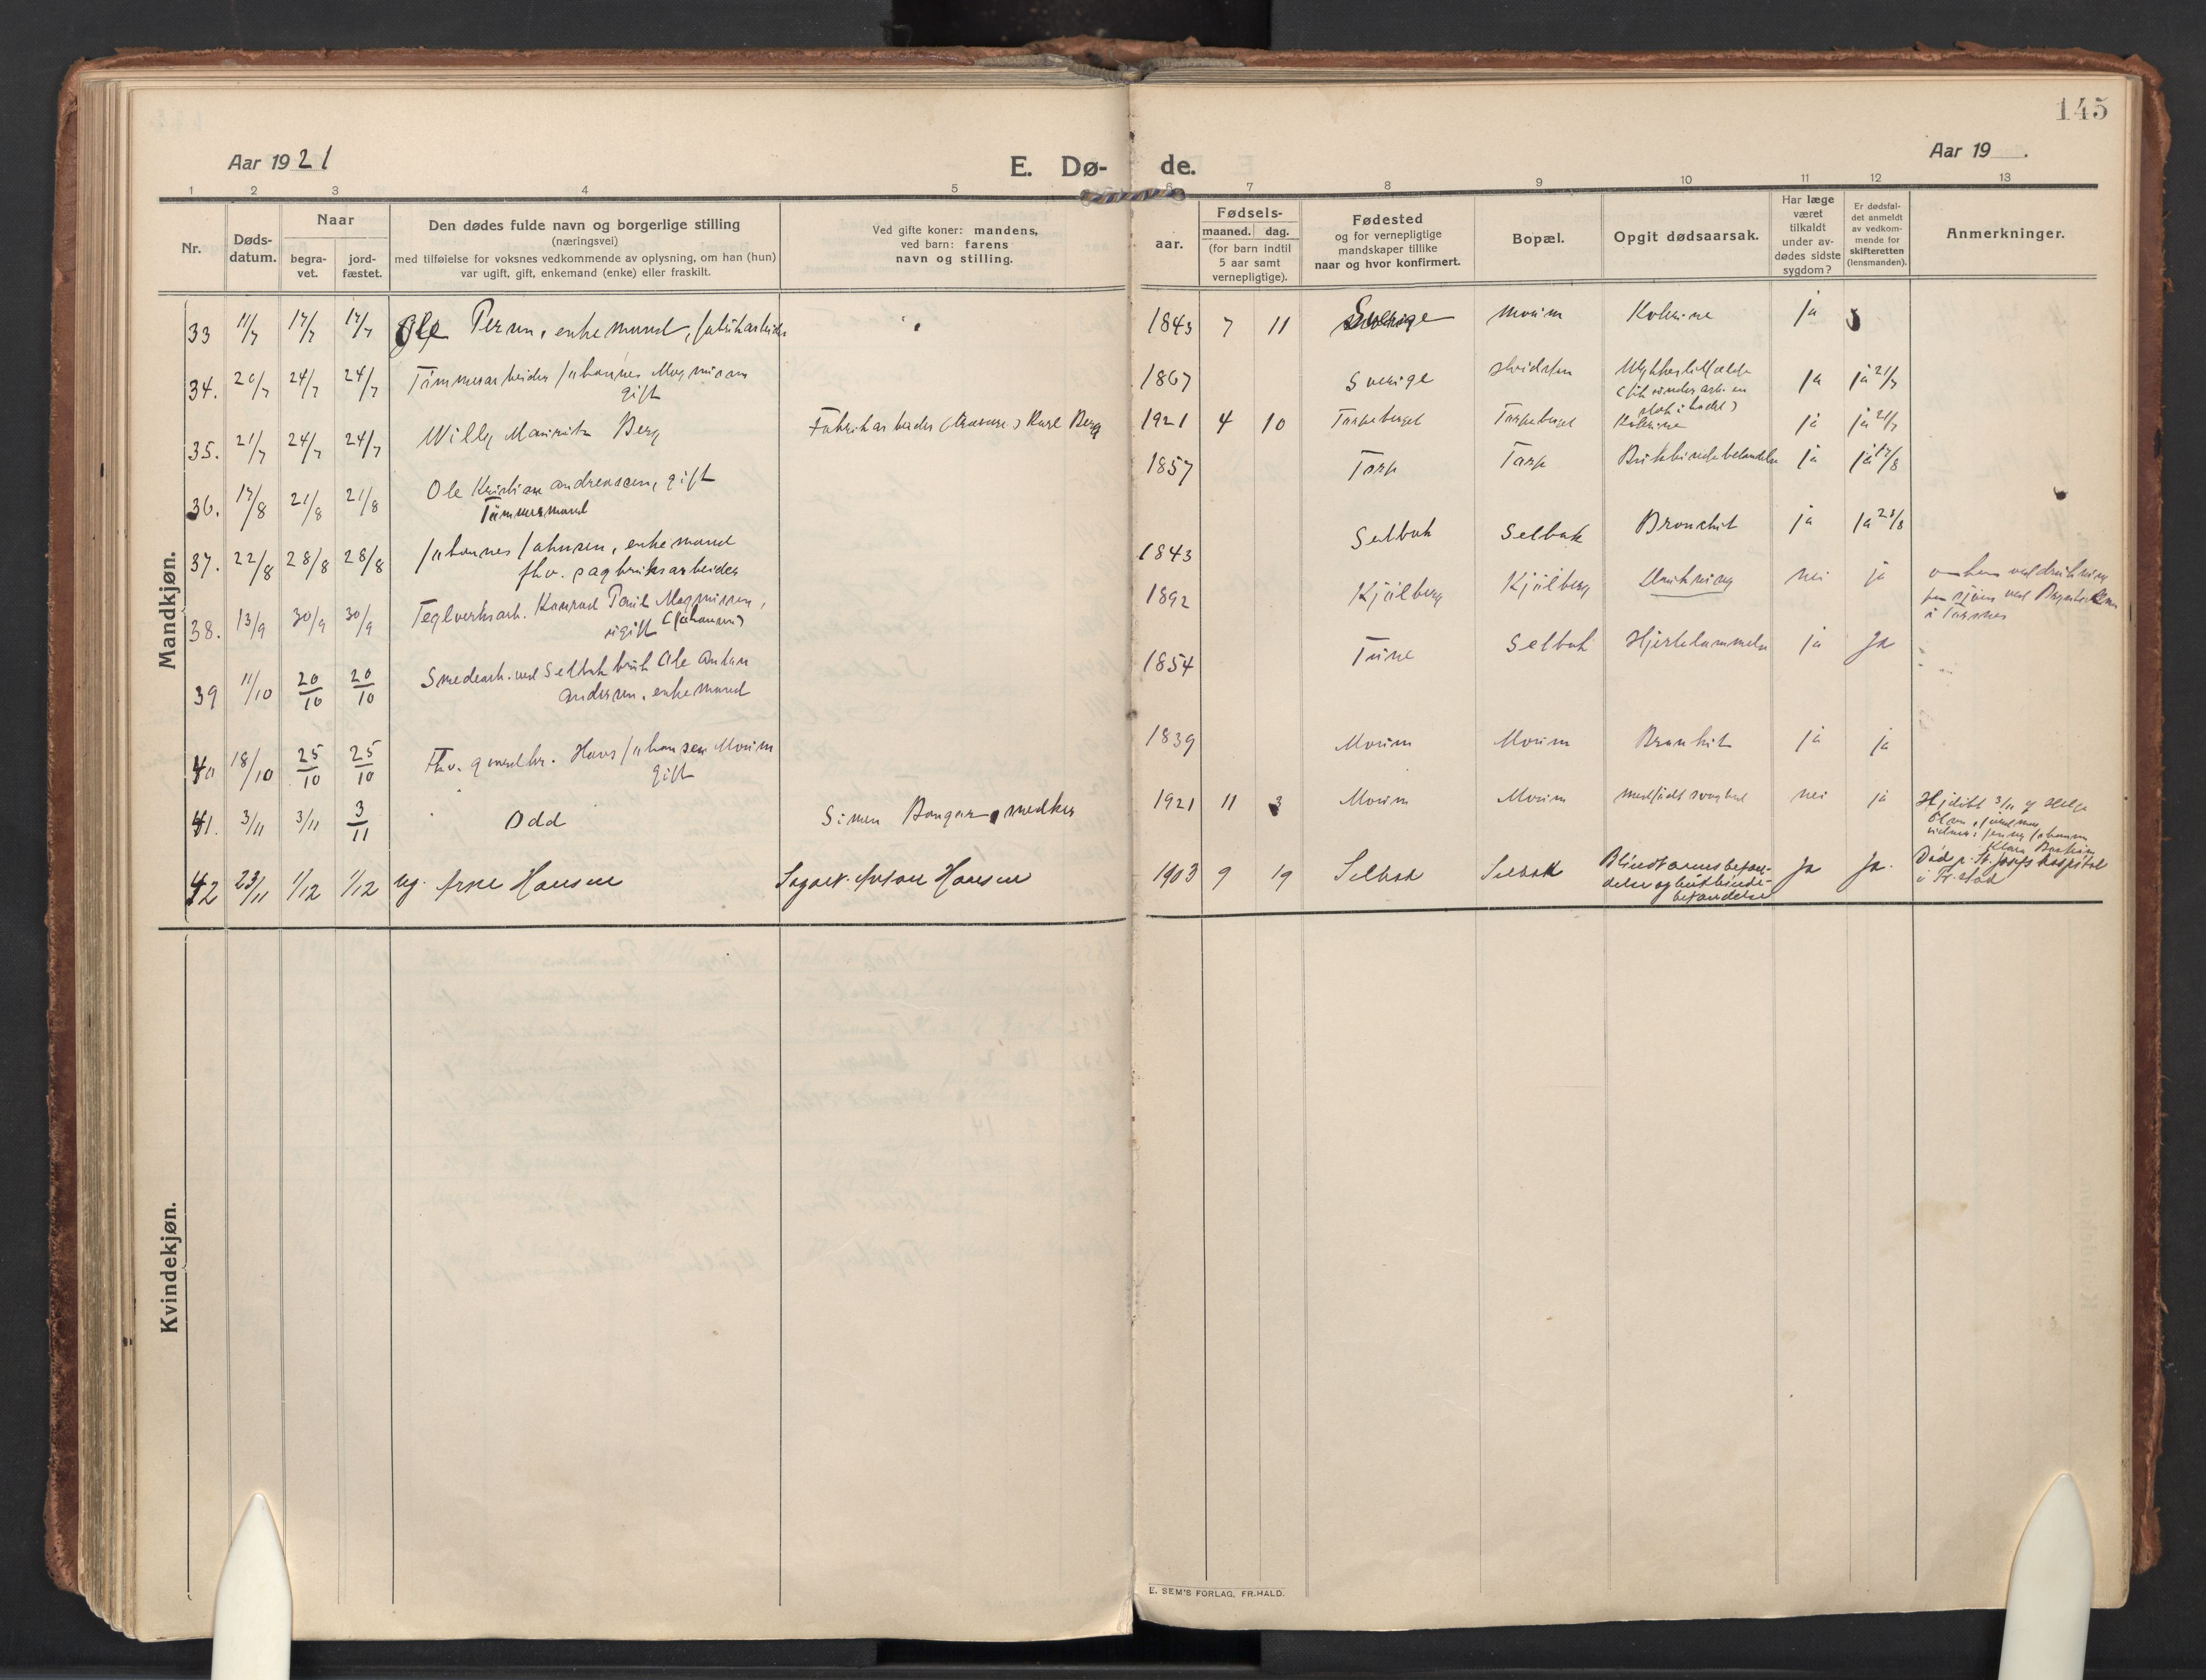 145
Aar 1921
E. Dø-
de.
Aar 19 .
1 2 3 4 5 6 7 8 9 10 11 12 13
Nr.
Døds-
datum.
Naar
begra-
vet.
jord-
fæstet.
Den dødes fulde navn og borgerlige stilling
(næringsvei)
med tilføielse for voksnes vedkommende av oplysning, om han (hun)
var ugift, gift, enkemand (enke) eller fraskilt.
Ved gifte koner: mandens,
ved barn: farens
navn og stilling.
aar.
Fødsels-
maaned. dag.
(for barn indtil
5 aar samt
vernepligtige).
Fødested
og for vernepligtige
mandskaper tillike
naar og hvor konfirmert.
Bopæl.
Opgit dødsaarsak.
Har læge
været
tilkaldt
under av-
dødes sidste
sygdom?
Er dødsfal-
det anmeldt
av vedkom-
mende for
skifteretten
(lensmanden).
Anmerkninger.
Mandkjøn.
33 11/7 17/7 17/7 Ole Persen, enkemand, fabrikarbeider 1843 7 11 Sverige Moum Kolerine ja
34. 20/7 24/7 24/7 Tømmerarbeider Johannes Magnussen
gift
1867 Sverige ja ja 21/7
35. 21/7 24/7 24/7 Willy Mauritz Berg Fabrikarbeider Karl Berg 1921 4 10 Torpeberget Torpeberget Kolerine ja ja 21/7
36. 17/8 21/8 21/8 Ole Kristian Andreassen, gift
Tømmermand
1857 Torp Torp Bukhindebetændelse ja ja 17/8
37. 22/8 28/8 28/8 Johannes Johnsen, enkemand
fhv. sagbruksarbeider
1843 Selbak Selbak Bronchit ja ja 23/8
38. 13/9 30/9 30/9 Teglverksarb. Konrad Paul Magnussen,
ugift (Johansen)
1892 Kjølberg Kjølberg Drukning nei ja omkom ved drukning
39 11/10 20/10 20/10 Smedearb. ved Selbak bruk Ole Anton
Andersen, enkemand
1854 Tune Selbak Hjertelammelse ja ja
40 18/10 25/10 25/10 Fhv. gaardbr. Hans Johansen Moum
gift
1839 Moum Moum Bronkit ja ja
41. 3/11 3/11 3/11 Odd Simen 1921 11 3 Moum Moum medfødt svaghed nei ja Hjdøbt 3/11 af Helga
42 23/11 1/12 1/12 ug. Arne Hansen Sagarb. Anton Hansen 1903 9 19 Selbak Selbak Blindtarmsbetæn-
delse og bukhinde-
betændelse
Ja Ja. Død p. St. Josefs hospital
i Fr.stad
Kvindekjøn.
E. SEM'S FORLAG, FR.HALD.